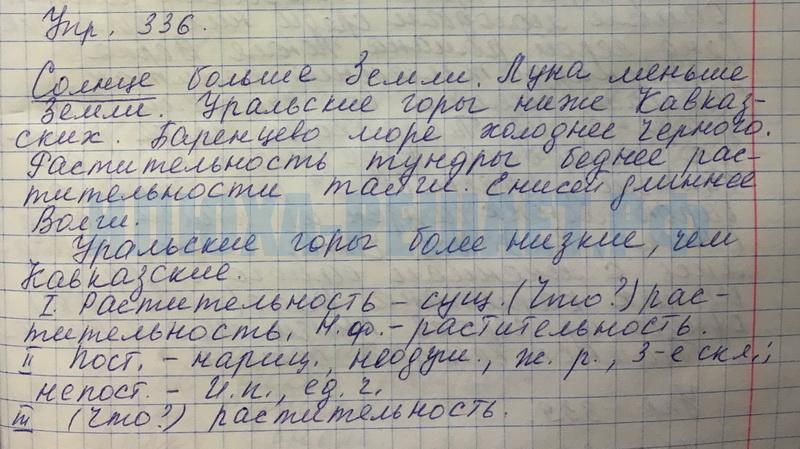 Упр. 336.
Солнце больше Земли. Луна меньше
Земли. Уральские горы ниже Кавказ-
ских. Баренцево море холоднее Черного.
Растительность тундры беднее рас-
тительности тайги. Енисей длиннее
Волги.
Уральские горы более низкие, чем
Кавказские.
I. Растительность – сущ. (Что?) рас-
тительность. Н.ф. – растительность.
II Пост. – нариц., неодуш., ж. р., 3-е скл.;
непост. – И.п., ед. ч.
III (Что?) растительность.